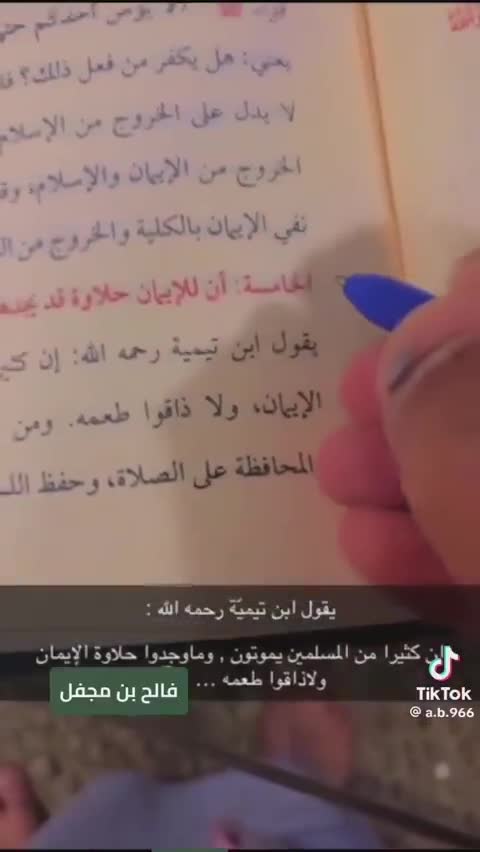 لا يؤمن أحدكم حتى
يعني: هل يكفر من فعل ذلك؟
لا يدل على الخروج من الإسلام
الخروج من الإيمان والإسلام،
نفي الإيمان بالكلية والخروج من
الخامسة: أن للإيمان حلاوة قد
يقول ابن تيمية رحمه الله: إن
الإيمان، ولا ذاقوا طعمه. ومن
المحافظة على الصلاة، وحفظ
يقول ابن تيميّة رحمه الله :
إن كثيرا من المسلمين يموتون , وماوجدوا حلاوة الإيمان
ولاذاقوا طعمه ...
فالح بن مجفل
TikTok
@ a.b.966